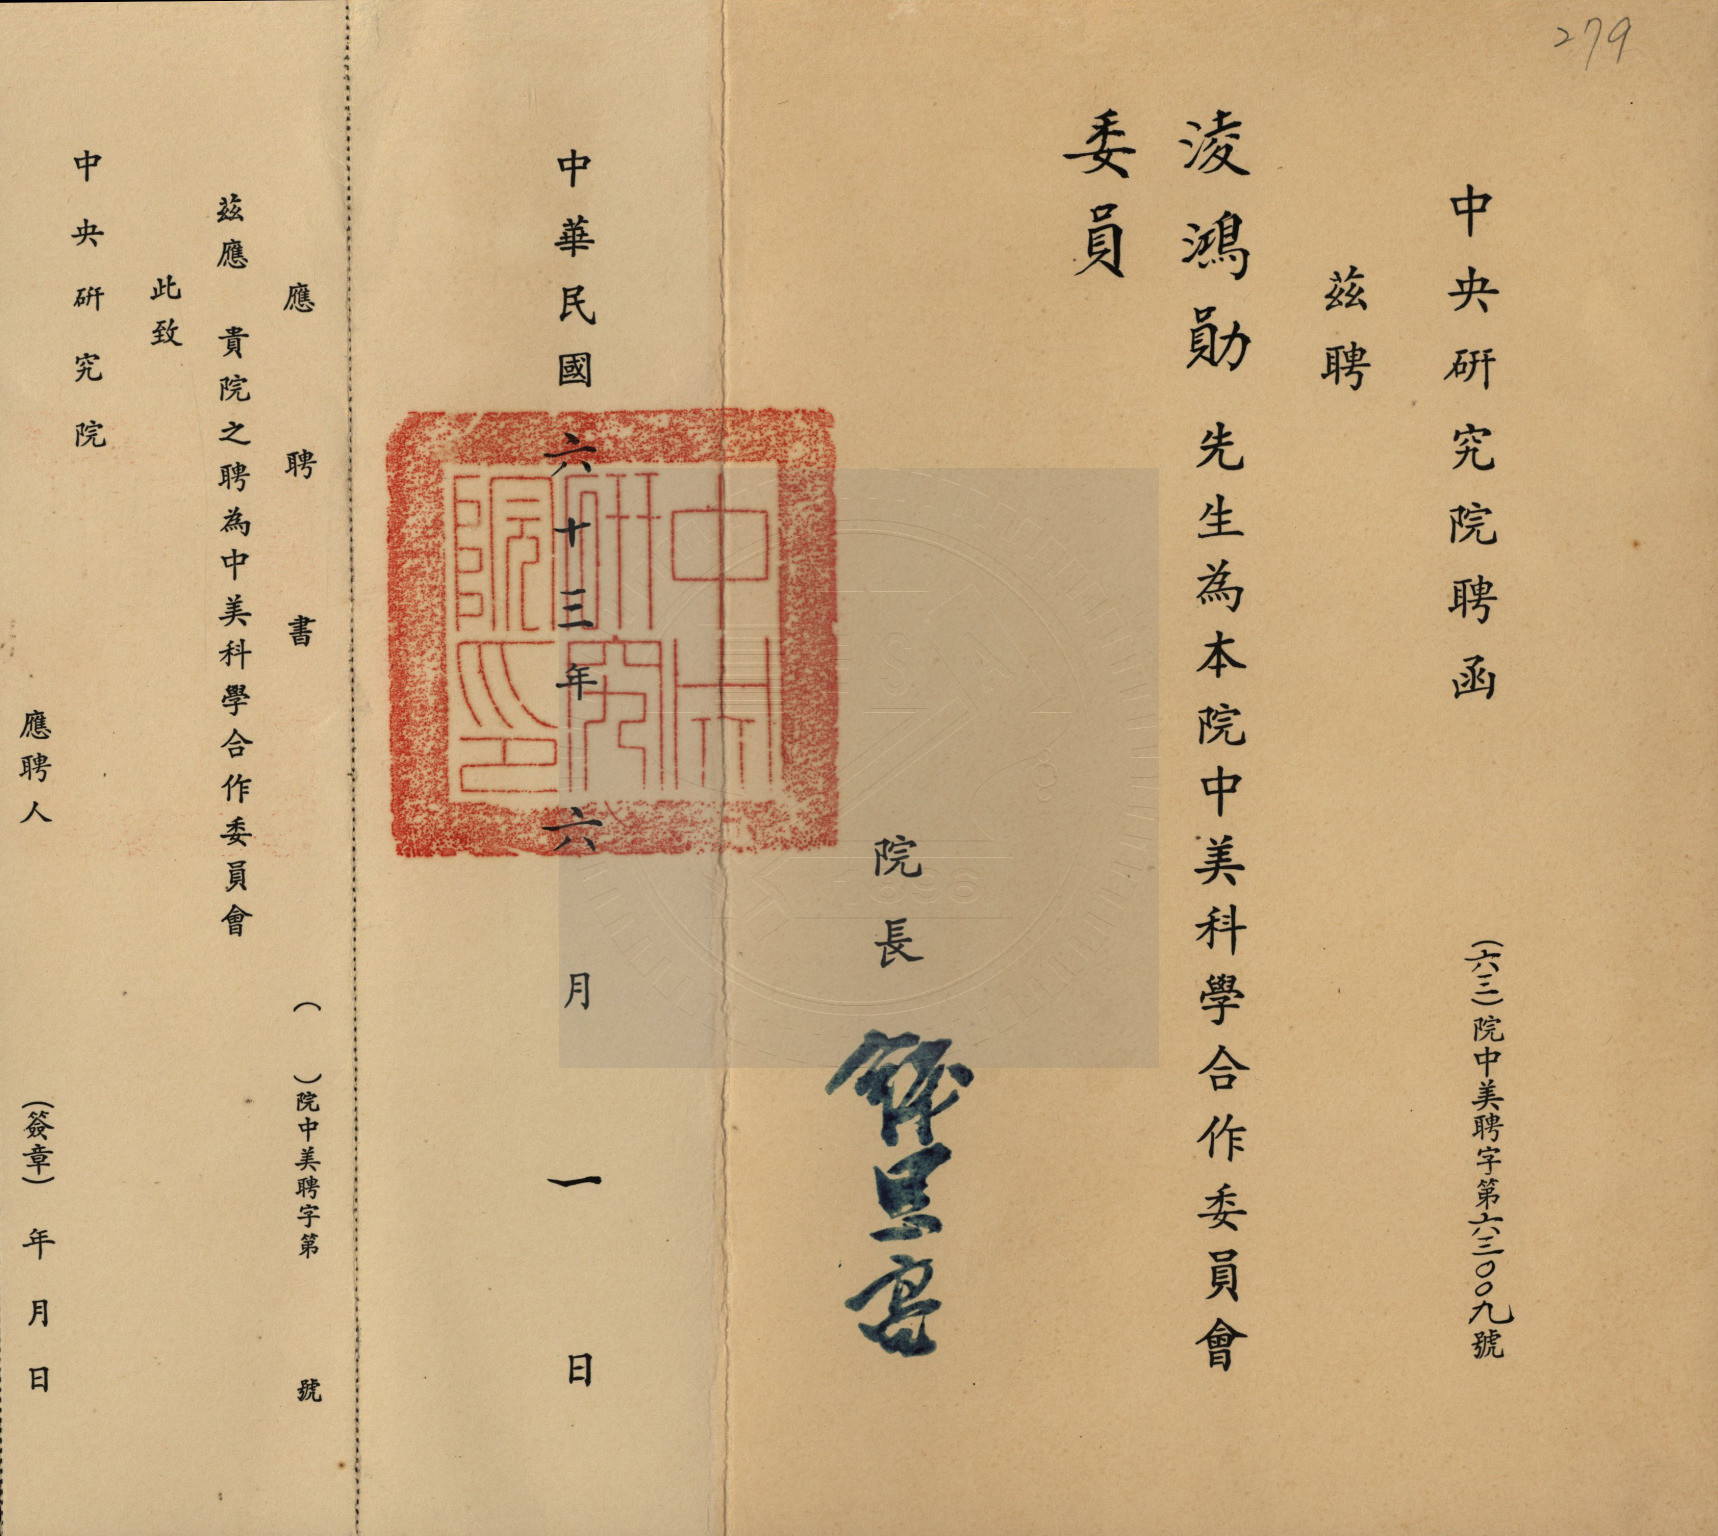 279
中央研究院聘函
(六三)院中美聘字第六三〇〇九號
茲聘
淩鴻勛先生為本院中美科學合作委員會
委員
院長 錢思亮
中華民國六十三年六月一日
中央研究院印
應聘書
( )院中美聘字第 號
茲應 貴院之聘為中美科學合作委員會
此致
中央研究院
應聘人 (簽章) 年 月 日
1896